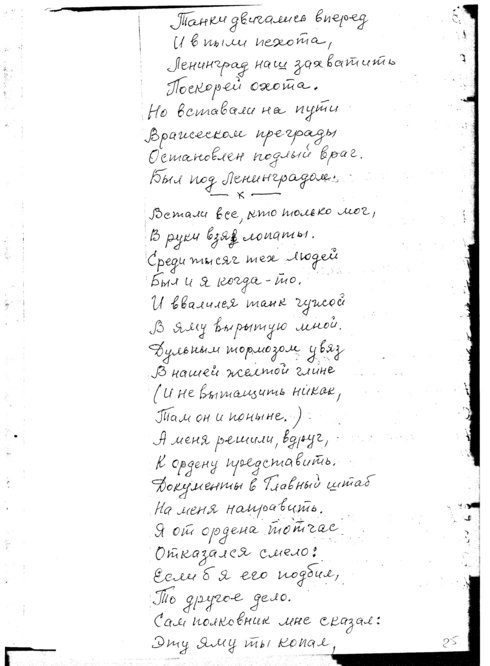 Танки двигались вперед
И в пыли пехота,
Ленинград наш захватить
Поскорей охота.
Но вставали на пути
Вражеском преграды
Остановлен подлый враг.
Был под Ленинградом.
— х —
Встали все, кто только мог,
В руки взяв лопаты.
Среди тысяч тех людей
Был и я когда-то.
И ввалился танк чужой
В яму вырытую мной.
Дульным тормозом увяз
В нашей желтой глине
(И не вытащить никак,
Там он и поныне.)
А меня решили, вдруг,
К ордену представить.
Документы в Главный штаб
На меня направить.
Я от ордена тотчас
Отказался смело:
Если б я его подбил,
То другое дело.
Сам полковник мне сказал:
Эту яму ты копал,
25